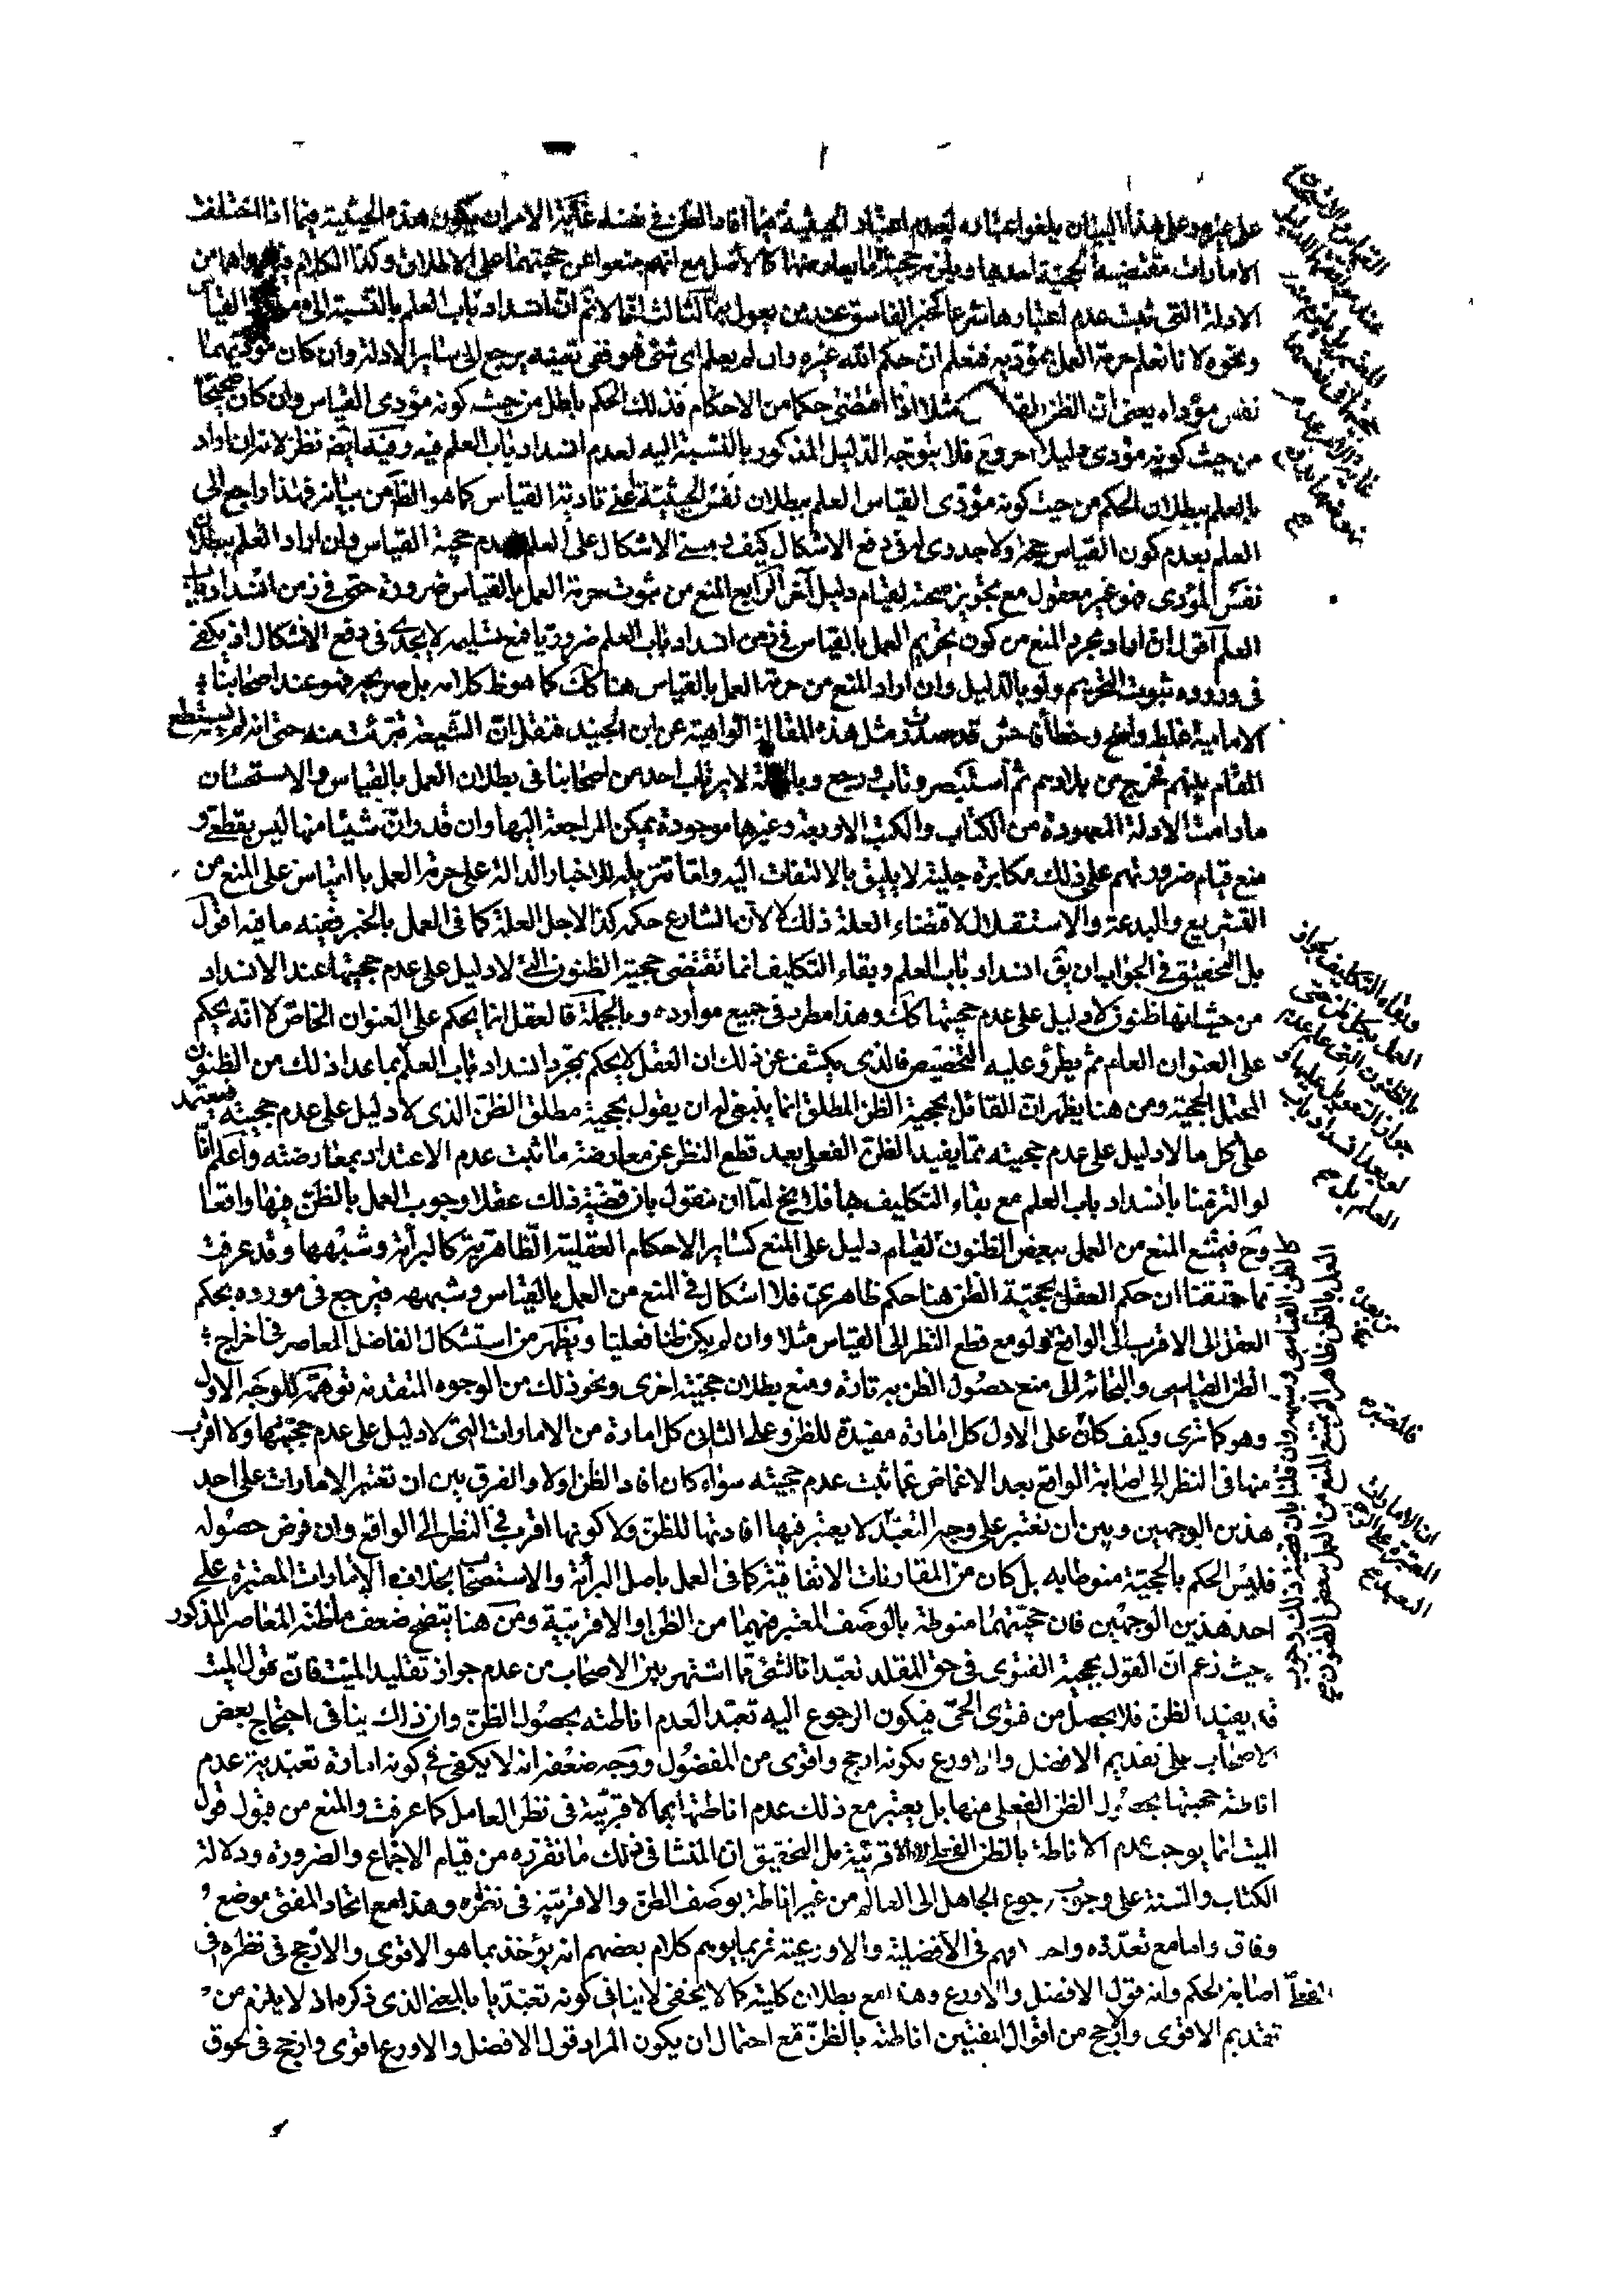 على غيره وعلى هذا البيان يلغو اعتباره لعدم اعتبار الحيثية فيما أفاد الظن في نفسه غاية الامر ان يكون هذه الحيثية فيما اذا اختلفت
الامارات مقتضية لحجية احدها ويلزمه حجية ما يعارضها كالأصل مع انهم منعوا عن حجيتها على الاطلاق وكذا الكلام في
الادلة التى ثبت عدم اعتبارها شرعا كخبر الفاسق عند من يعول الثالث انا لا نم ان انسداد باب العلم بالنسبة الى القياس
ونحوه لانا نعلم حرمة العمل بمؤديه فنعلم ان حكم الله غيره وان لم يعلم اى شئ هو ففى تعيينه يرجع الى ساير الادلة وان كان مؤديهما
نفس مؤداه يعنى ان الظن مثلا اذا اقتضى حكما من الاحكام فذلك الحكم باطل من حيث كونه مؤدى القياس وان كان صحيحا
من حيث كونه مؤدى دليل اخر وح فلا يتوجه الدليل المذكور بالنسبة اليه لعدم انسداد باب العلم فيه وفيه ايضا نظر لانه ان اراد
بالعلم ببطلان الحكم من حيث كونه مؤدى القياس العلم ببطلان نفس الحيثية اعنى تادية القياس كما هو الظ من بيانه فهذا راجع الى
العلم بعدم كون القياس حجة ولا جدوى له فى دفع الاشكال كيف ومبنى الاشكال على العلم بعدم حجية القياس وان اراد العلم ببطلان
نفس المؤدى فهو غير معقول مع تجويز صحته لقيام دليل آخر الرابع المنع من ثبوت حرمة العمل بالقياس ضرورة حتى فى زمن انسداد باب
العلم اقول ان اراد مجرد المنع من كون تحريم العمل بالقياس فى زمن انسداد باب العلم ضروريا فمع تسليمه لا يجدى فى دفع الاشكال اذ يكفى
فى وروده ثبوت التحريم ولو بالدليل وان اراد المنع من حرمة العمل بالقياس هناك كما هو ظ كلامه بل صريحه فهو عند اصحابنا
الامامية غلط واضح وخطأ فاحش قد صدر مثل هذه المقالة الواهية عن ابن الجنيد فنقل ان الشيعة تبرئت منه حتى انه لم يستطع
المقام بينهم فخرج من بلادهم ثم استبصر وتاب ورجع وبالجملة لا يرتاب احد من اصحابنا فى بطلان العمل بالقياس والاستحسان
مادامت الادلة المعهودة من الكتاب والكتب الاربعة وغيرها موجودة يمكن المراجعة اليها وان قدر ان شيئا منها ليس بقطعى و
منع قيام ضرورتهم على ذلك مكابرة جلية لا يليق بالالتفات اليه واما تنزيله للاخبار الدالة على حرمة العمل بالقياس على المنع من
التشريع والبدعة والاستقلال لاقتضاء العلة ذلك لا لان الشارع حكم كذا لاجل العلة كما فى العمل بالخبر ففيه ما فيه اقول
بل التحقيق فى الجواب ان يق انسداد باب العلم وبقاء التكليف انما تقتضى حجية الظنون التى لا دليل على عدم حجيتها عند الانسداد
من حيث انها ظنون لا دليل على عدم حجيتها كك وهذا مطرد فى جميع موارده وبالجملة فالعقل انما يحكم على العنوان الخاص لا انه يحكم
على العنوان العام ثم يطرؤ عليه التخصيص فالذى يكشف عن ذلك ان العقل لا يحكم بمجرد انسداد باب العلم بما عدا ذلك من الظنون
المحتمل الحجية ومن هنا يظهر ان القائل بحجية الظن المطلق انما ينبغى له ان يقول بحجية مطلق الظن الذى لا دليل على عدم حجيته فيعتمد
على كل ما لا دليل على عدم حجيته مما يفيد الظن الفعلى بعد قطع النظر عن معارضة ما ثبت عدم الاعتداد بمعارضته واعلم انا
لو التزمنا بانسداد باب العلم مع بقاء التكليف بها فلا يخ اما ان نقول بان قضية ذلك عقلا وجوب العمل بالظن فيها واقعا
وح فيمتنع المنع من العمل ببعض الظنون لقيام دليل على المنع كسائر الاحكام العقلية الظاهرية كالبرأة وشبهها وقد عرفت
مما حققنا ان حكم العقل بحجية الظن هنا حكم ظاهرى فلا اشكال فى المنع من العمل بالقياس وشبهه فيرجع فى مورده بحكم
العقل الى الاقرب الى الواقع ولو مع قطع النظر الى القياس مثلا وان لم يكن ظنا فعليا ويظهر من استشكال الفاضل المعاصر فى اخراج
الظن القياسى والتجائه الى منع حصول الظن به تارة ومنع بطلان حجيته اخرى ونحو ذلك من الوجوه المتقدمة توهمه للوجه الاول
وهو كما ترى وكيف كان فعلى الاول كل امارة مفيدة للظن وعلى الثانى كل امارة من الامارات التى لا دليل على عدم حجيتها ولا اقرب
منها فى النظر الى اصابة الواقع بعد الاغماض عما ثبت عدم حجيته سواء كان افاد الظن اولا والفرق بين ان تعتبر الامارات على احد
هذين الوجهين وبين ان تعتبر على وجه التعبد لا يعتبر فيها افادتها للظن ولا كونها اقرب فى النظر الى الواقع وان فرض حصوله
فليس الحكم بالحجية منوطا به بل كان من المقارنات الاتفاقية كما فى العمل باصل البرأة والاستصحاب بخلاف الامارات المعتبرة على
احد هذين الوجهين فان حجيتهما منوطة بالوصف المعتبر فيهما من الظن او الاقربية ومن هنا يتضح ضعف ما ظنه المعاصر المذكور
حيث زعم ان القول بحجية الفتوى فى حق المقلد تعبدا نا لشئ مما اشتهر بين الاصحاب من عدم جواز تقليد الميت فان قول الميت
قد يفيد الظن فلا يحصل من فتوى الحى فيكون الرجوع اليه تعبدا لعدم اناطته بحصول الظن وان ذلك ينافى احتجاج بعض
الاصحاب على تقديم الافضل والاورع بكونه ارجح واقوى من المفضول ووجه ضعفه انه لا يكفى فى كونه امارة تعبدية عدم
اناطة حجيتها بحصول الظن الفعلى منها بل يعتبر مع ذلك عدم اناطتها بالاقربية فى نظر العامل كما عرفت والمنع من قبول قول
الميت انما يوجب عدم الاناطة بالظن الفعلى الاقربية بل التحقيق ان المنشا فى ذلك ما نقرره من قيام الاجماع والضرورة ودلالة
الكتاب والسنة على وجوب رجوع الجاهل الى العالم من غير اناطة بوصف الظن والاقربية فى نظره وهذا مع اتحاد المفتى موضع
وفاق واما مع تعدده واختلافهم فى الافضلية والاورعية فربما يوهم كلام بعضهم انه يؤخذ بما هو الاقوى والارجح فى نظره فى
اصابة الحكم وانه قول الافضل والاورع وهذا مع بطلان كليته كما لا يخفى لا ينافى كونه تعبديا بالمعنى الذى ذكره اذ لا يلزم من
تقديم الاقوى والارجح من اقوال المفتيين اناطته بالظن مع احتمال ان يكون المراد قول الافضل والاورع اقوى وارجح فى لحوق
وبقاء التكليف بجواز
العمل بكل ظن حتى
بالظنون التى علم عدم
جواز التعويل عليها و
لو بعد انسداد باب
العلم بل
العمل بالظن ظاهرا لم يمتنع المنع من العمل ببعض الظنون
ان الامارات
المعتبرة على
التعبد